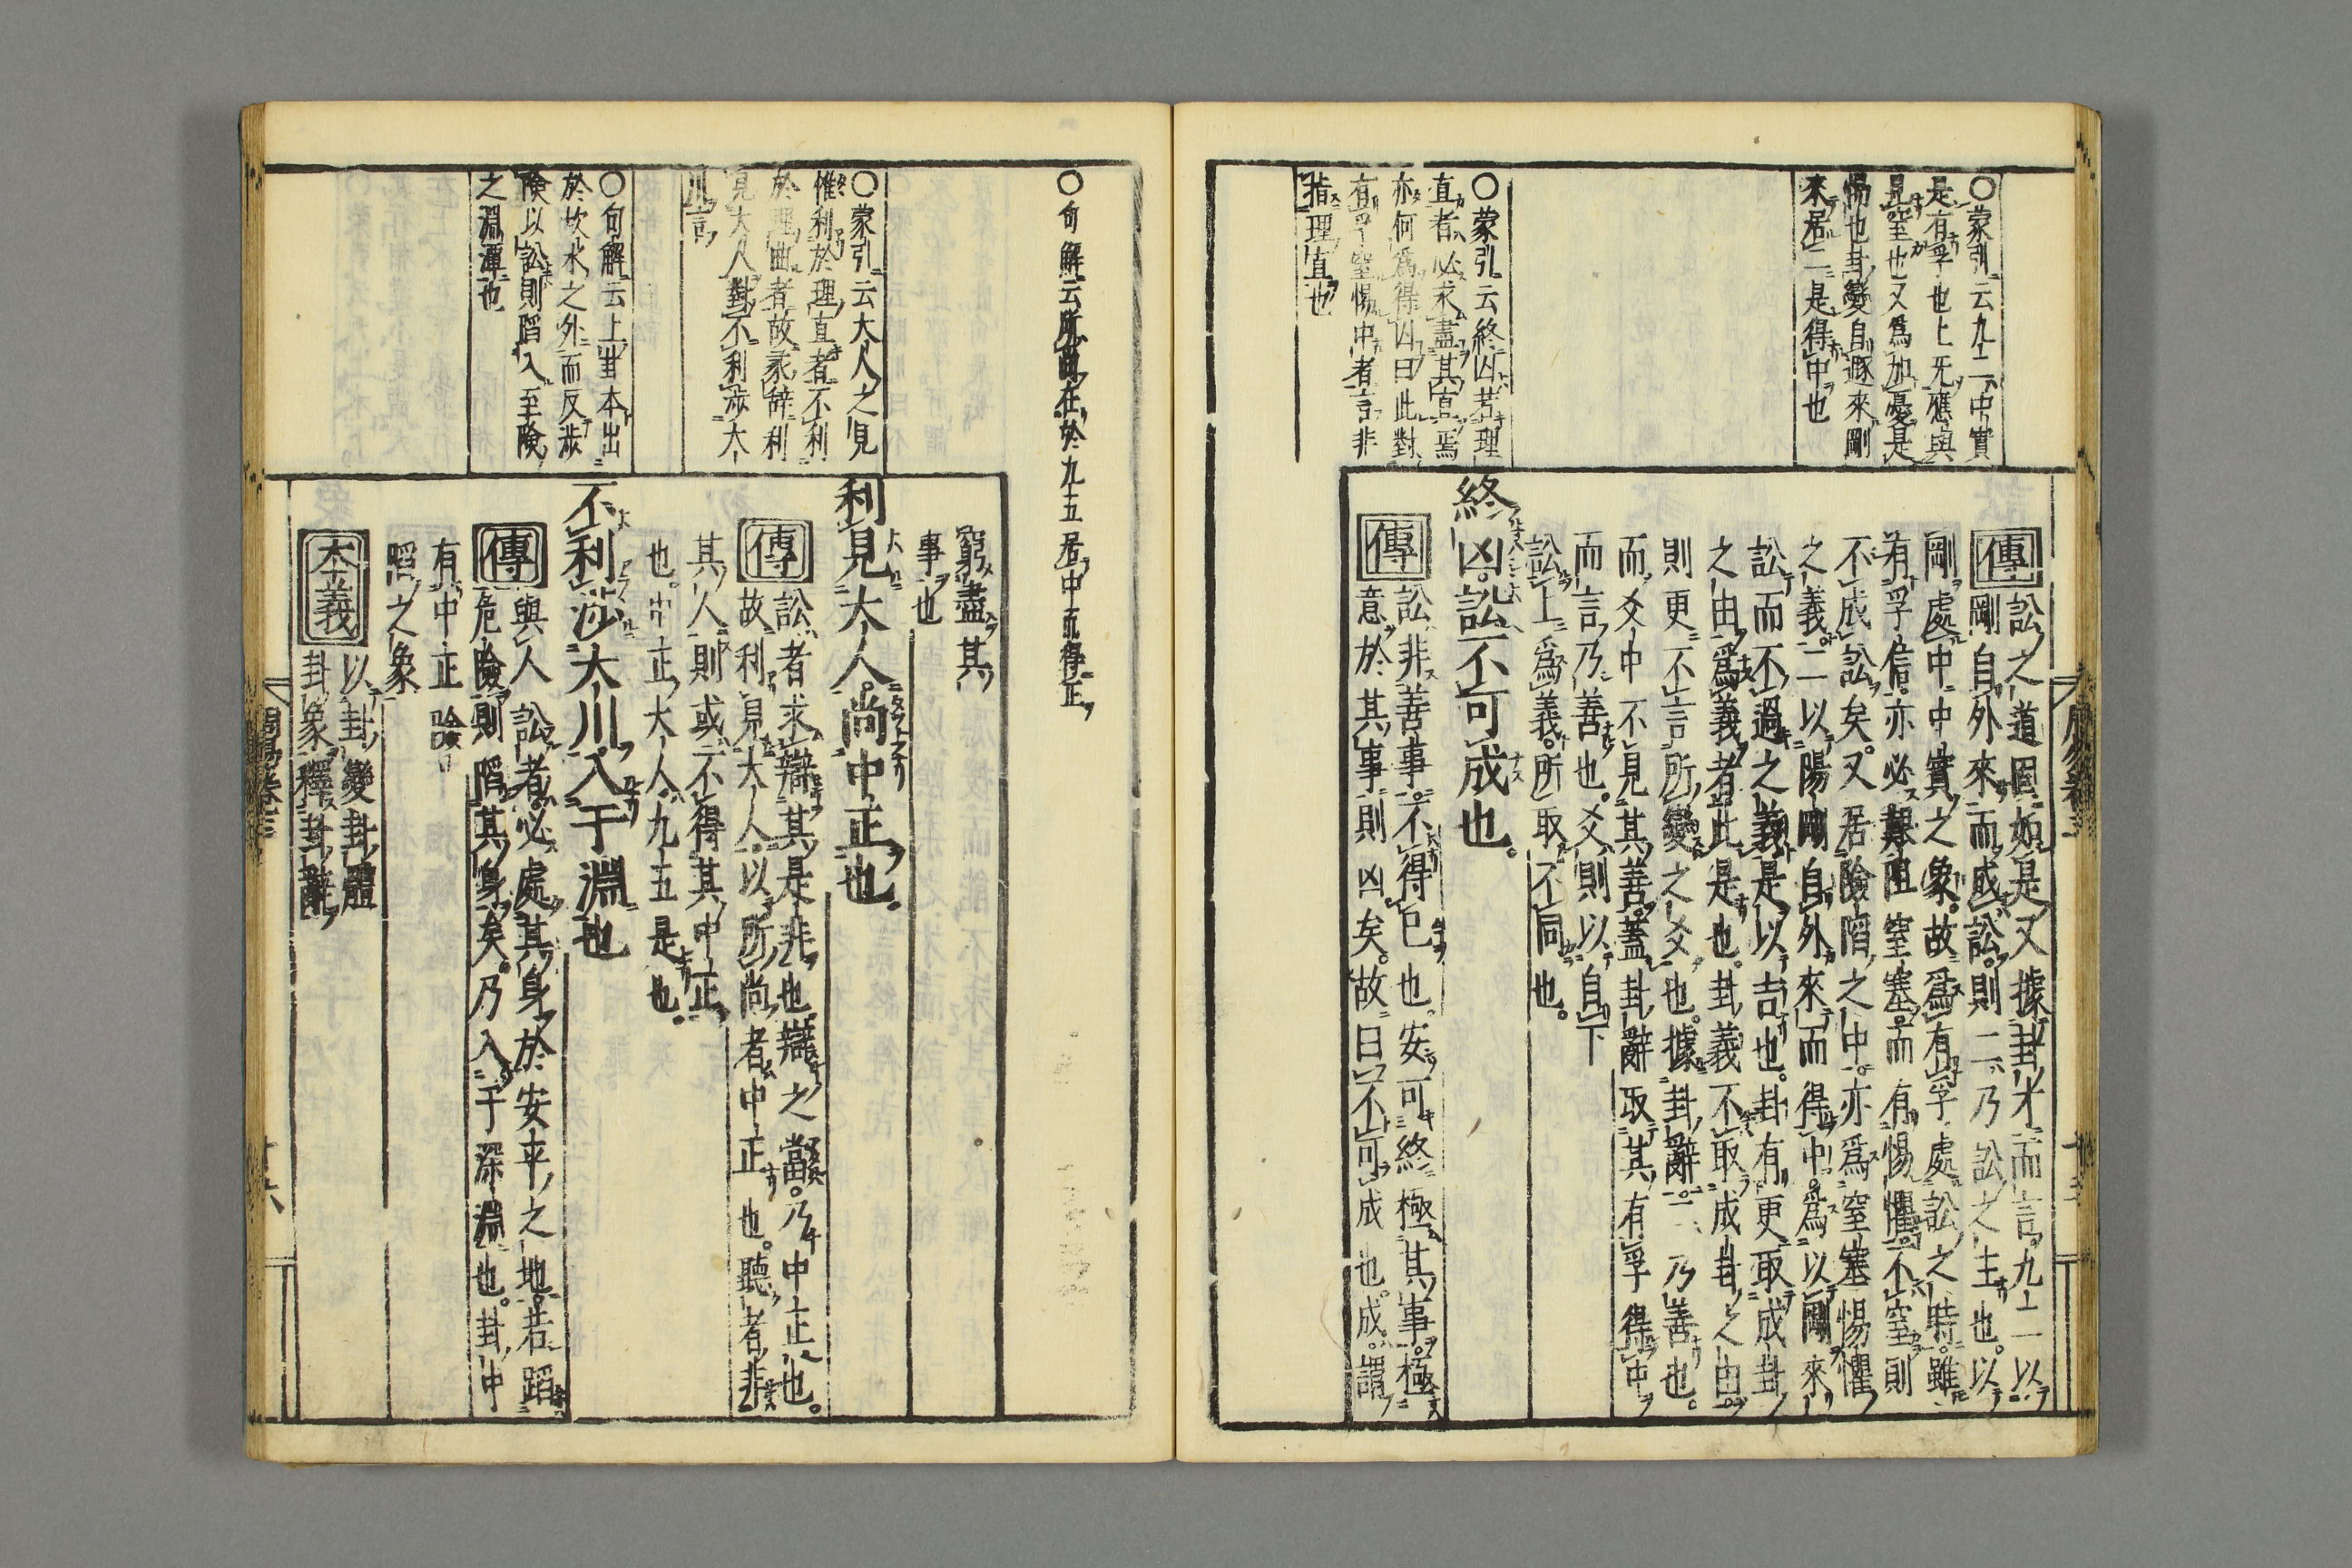 ○蒙引云九二中實
是有孚也上旡應與
是窒也又爲加憂是
惕也卦變自遯來剛
來居二是得中也
○蒙引云終凶若理
直者必求盡其直焉
亦何爲得凶曰此對
有孚窒惕中者言非
指理直也
傳
訟之道固如是又據卦才而言九二以
剛自外來而成訟則二乃訟之主也以
剛處中中實之象故爲有孚處訟之時雖
有孚信亦必艱阻窒塞而有惕懼不窒則
不成訟矣又居險陷之中亦爲窒塞惕懼
之義二以陽剛自外來而得中爲以剛來
訟而不過之義是以吉也卦有更取成卦
之由爲義者此是也卦義不取成卦之由
則更不言所變之爻也據卦辭二乃善也
而爻中不見其善蓋卦辭取其有孚得中
而言乃善也爻則以自下
訟上爲義所取不同也
終凶訟不可成也
傳
訟非善事不得已也安可終極其事極
意於其事則凶矣故曰不可成也成謂
周易卷三
○句解云所尚在於九五居中而得正
○蒙引云大人之見
惟利於理直者不利
於理曲者故彖辭利
見大人對不利涉大
川言
○句解云上卦本出
於坎水之外而反涉
險以訟則陷入至險
之淵潭也
窮盡其
事也
利見大人尚中正也
傳
訟者求辯其是非也辯之當乃中正也
故利見大人以所尚者中正也聽者非
其人則或不得其中正
也中正大人九五是也
不利涉大川入于淵也
傳
與人訟者必處其身於安平之地若蹈
危險則陷其身矣乃入于深淵也卦中
有中正險
陷之象
本義
以卦變卦體
卦象釋卦辭
周易卷三
十六